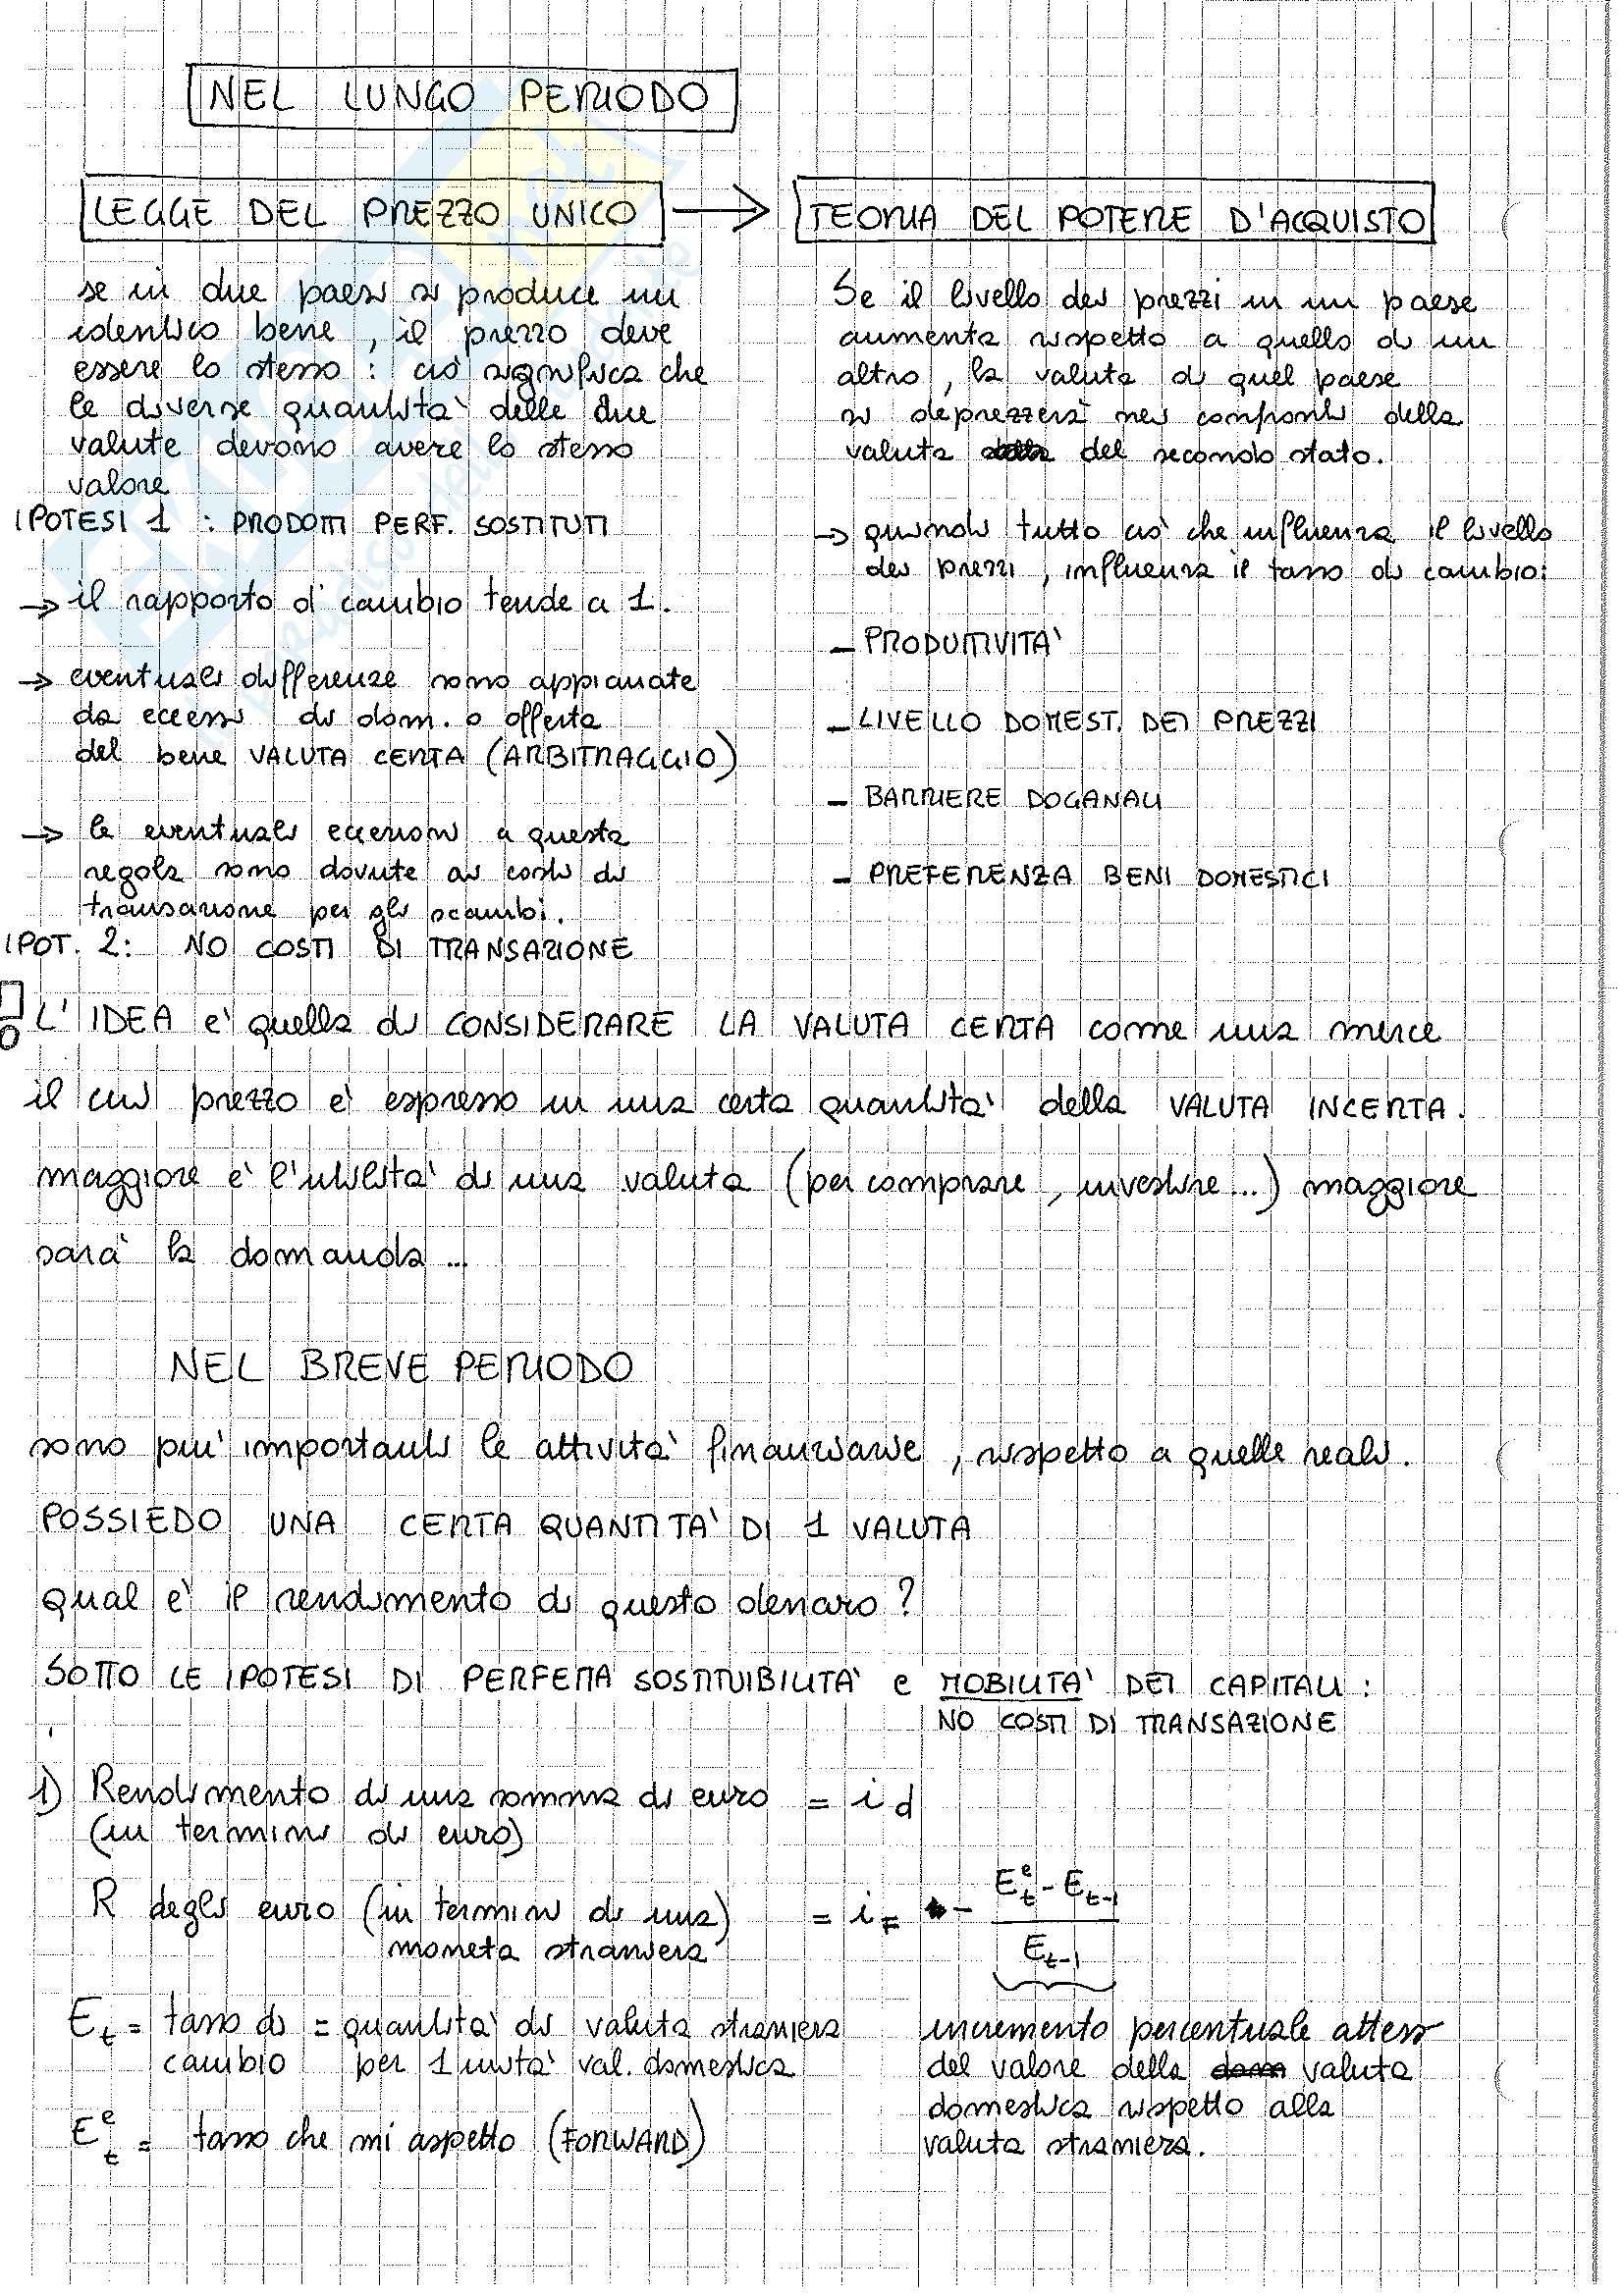 NEL LUNGO PERIODO
LEGGE DEL PREZZO UNICO
se in due paesi si produce un
identico bene, il prezzo deve
essere lo stesso: ciò significa che
le diverse quantità delle due
valute devono avere lo stesso
valore
IPOTESI 1 : PRODOTTI PERF. SOSTITUTI
→ il rapporto di cambio tende a 1.
→ eventuali differenze sono appianate
da eccessi di dom. o offerta
del bene VALUTA CERTA (ARBITRAGGIO)
→ le eventuali eccezioni a questa
regola sono dovute ai costi di
transazione per gli scambi.
IPOT. 2: NO COSTI DI TRANSAZIONE
→ TEORIA DEL POTERE D'ACQUISTO
Se il livello dei prezzi in un paese
aumenta rispetto a quello di un
altro, la valuta di quel paese
si deprezzerà nei confronti della
valuta del secondo stato.
→ quindi tutto ciò che influenza il livello
dei prezzi, influenza il tasso di cambio:
- PRODUTTIVITA'
- LIVELLO DOMEST. DEI PREZZI
- BARRIERE DOGANALI
- PREFERENZA BENI DOMESTICI
L'IDEA è quella di CONSIDERARE LA VALUTA CERTA come una merce
il cui prezzo è espresso in una certa quantità della VALUTA INCERTA.
maggiore è l'utilità di una valuta (per comprare, investire...) maggiore
sarà la domanda...
NEL BREVE PERIODO
sono più importanti le attività finanziarie, rispetto a quelle reali.
POSSIEDO UNA CERTA QUANTITA' DI 1 VALUTA
qual è il rendimento di questo denaro?
SOTTO LE IPOTESI DI PERFETTA SOSTITUIBILITA' e MOBILITA' DEI CAPITALI :
NO COSTI DI TRANSAZIONE
1) Rendimento di una somma di euro = i d
(in termini di euro)
R degli euro (in termini di una) = i F - (E^e_t - E_t-1) / E_t-1
moneta straniera
E_t = tasso di = quantità di valuta straniera
cambio per 1 unità val. domestica
E^e_t = tasso che mi aspetto (FORWARD)
incremento percentuale atteso
del valore della valuta
domestica rispetto alla
valuta straniera.